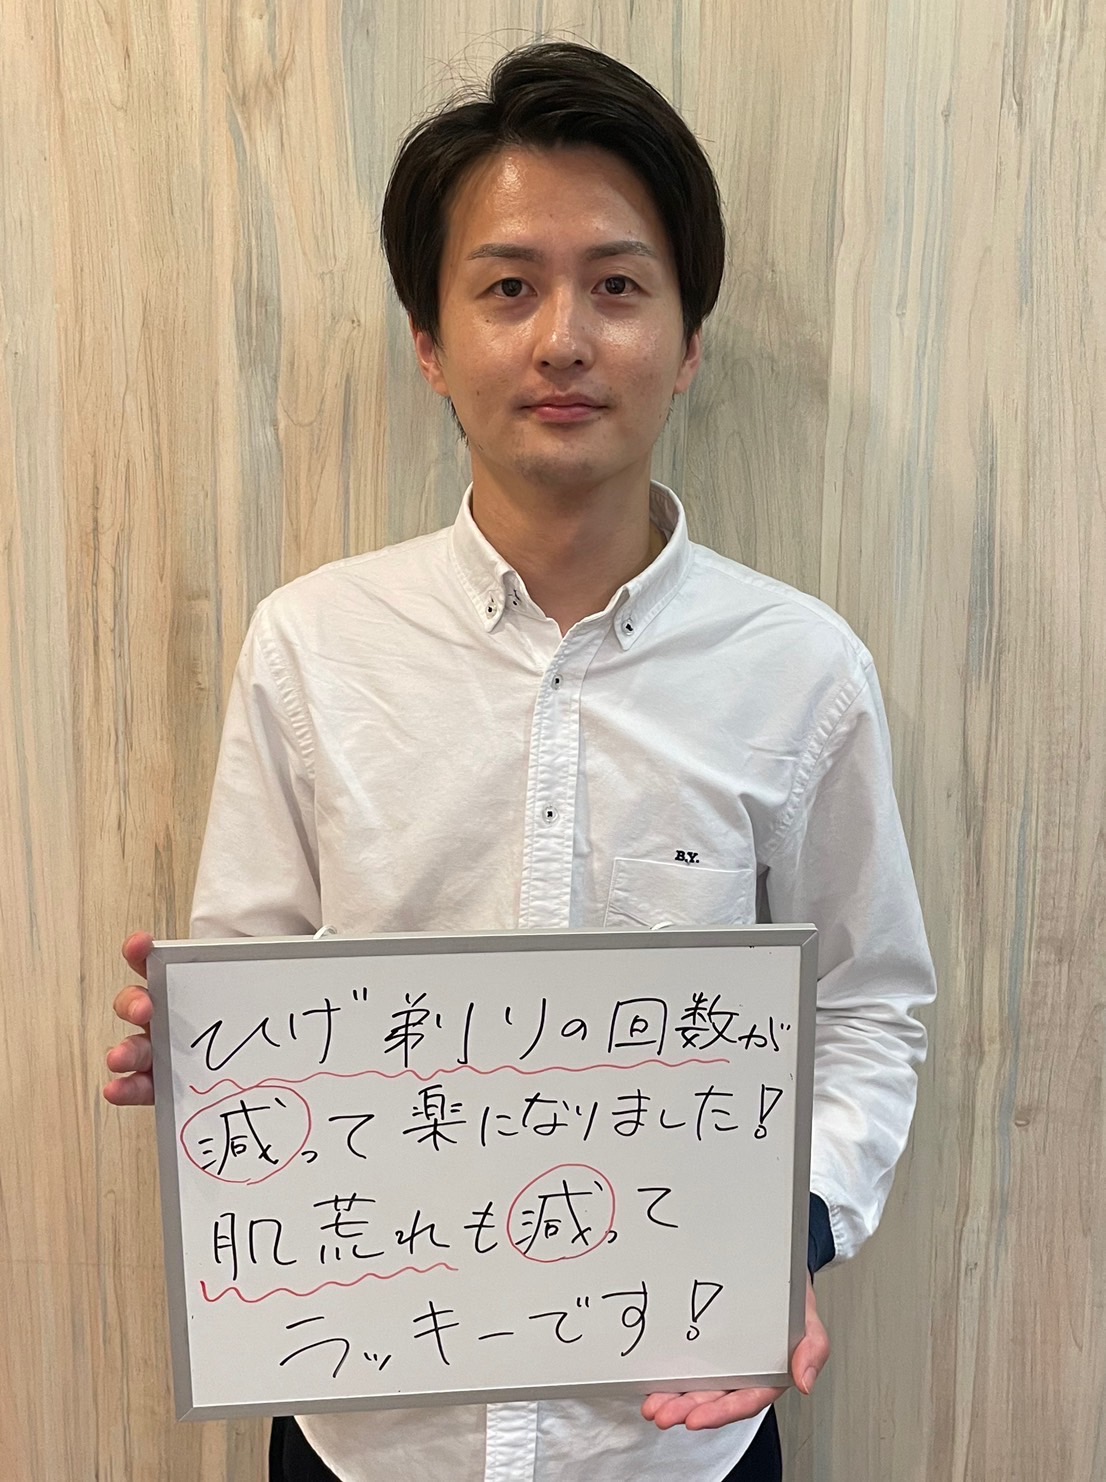 B.Y.
ひげ剃りの回数が
減って楽になりました!
肌荒れも減って
ラッキーです!